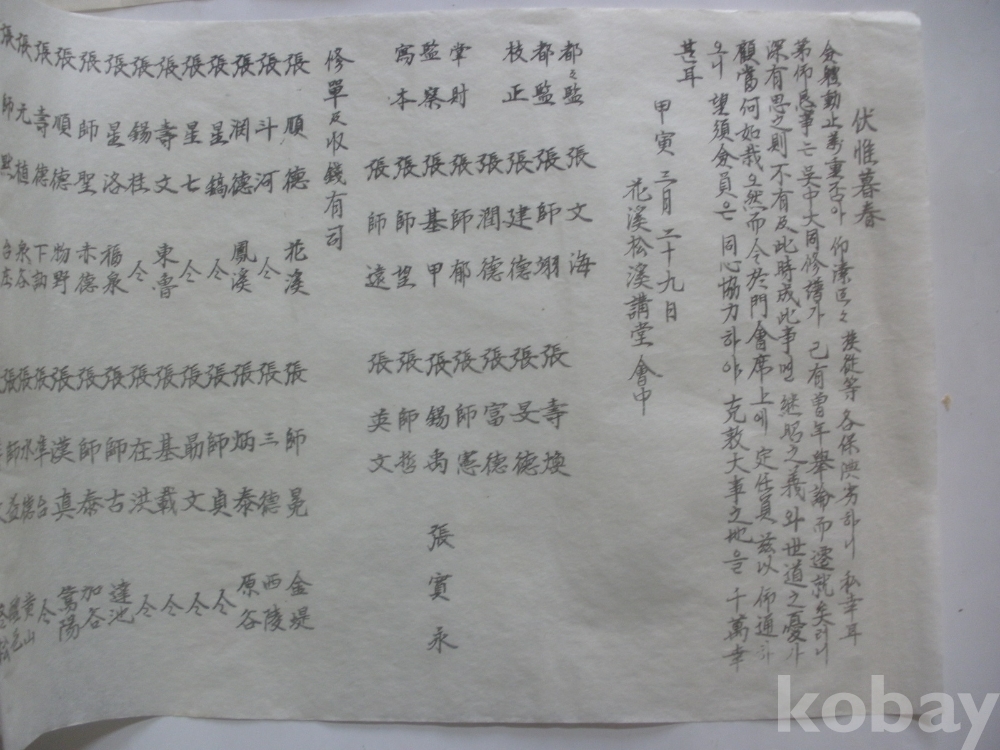 伏惟暮春
分軆動止萬重否아 仰溱區〻 族從等 各保渙劣하니 私幸耳
第仰恳事는 吳中大同修譜가 己有曾年擧論而遷就矣러니
深有思之則 不有及此時成此事면 継昭之義와 世道之憂가
顧當何如哉오 然而今於門會席上에 定任員 玆以仰通하
오니 望須分員은 同心協力하야 克敦大事之地을 千萬幸
甚耳
甲寅三月二十九日
花溪松溪講堂會中
都〻監 張文海 張壽煥
都監 張師翊 張旻德
校正 張建德 張富德
張潤德 張師憲
掌財 張師郁 張錫禹 張寅永
監察 張基甲 張師哲
寫本 張師望 張英文
張師遠
修單及收錢有司
張順德 花溪 張師晃 金堤
張斗河 仝 張三德 西陵
張潤德 鳳溪 張炳泰 原谷
張星鎬 仝 張師貞 仝
張星七 仝 張勗文 仝
張壽文 東魯 張基載 仝
張錫桂 仝 張在洪 仝
張星洛 福泉 張師古 達池
張師聖 赤德 張師泰 加谷
張順德 物野 張漢眞 篤陽
張壽德 下訥 張準台 仝
張元植 泉谷
張師